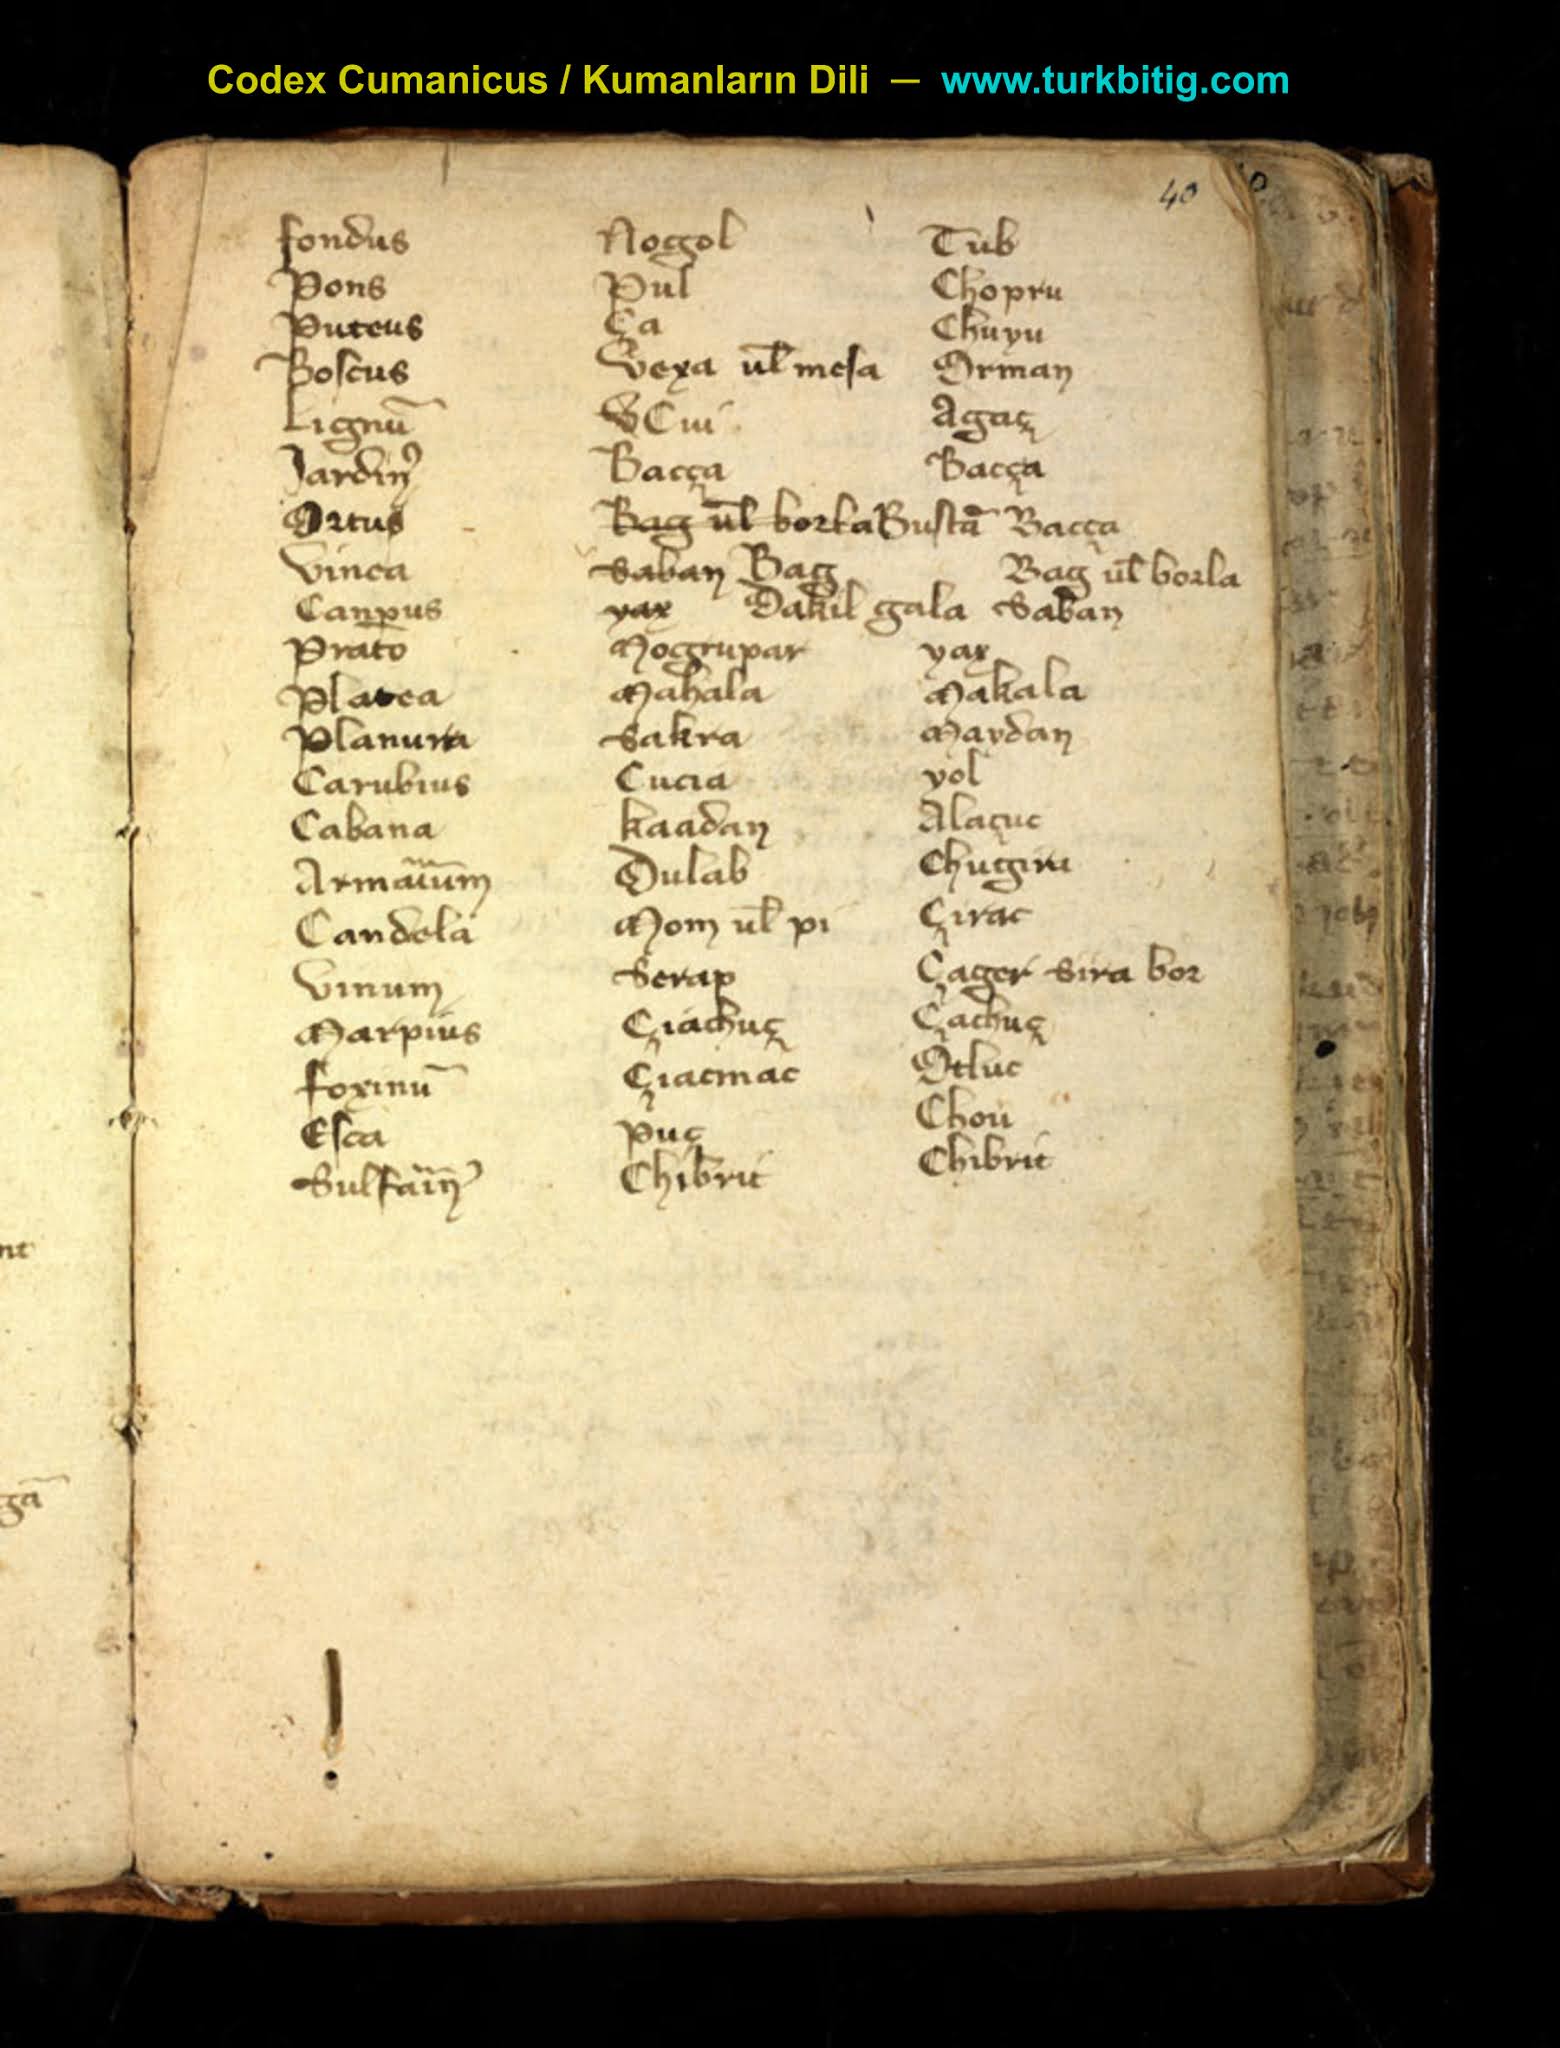 Codex Cumanicus / Kumanların Dili — www.turkbitig.com
40
fondus Nogol Tub
Pons Pul Chopru
Puteus Ça Chuyu
Boscus Vexa ul̄ mesa Orman
Lignū Agaç
Jardin̉ Bacça Bacça
Ortus Bag ul̄ borla Bustā Bacça
Vinea Saban Bag Bag ul̄ borla
Canpus yax Dakil gala Saban
Prato Mogrupar yax
Platea Mahala Makala
Planura Sakra Maydan
Carubius Cucia yol
Cabana kaadan Alaçuc
Dulab
Candela Mom ul̄ pi Çirac
Vinum Serap Çager Sira bor
Marpius Çiachuç Çachuç
foxinū Çiacmac Otluc
Esca Puç Chou
Chibrit Chibrit
nt
gā